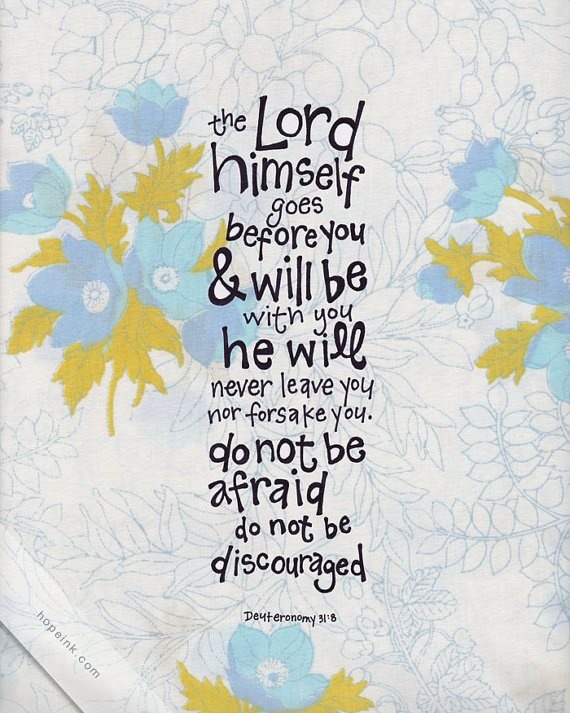 the Lord
himself
goes
before you
& will be
with you
he will
never leave you
nor forsake you.
do not be
afraid
do not be
discouraged
Deuteronomy 31:8
hopeink.com